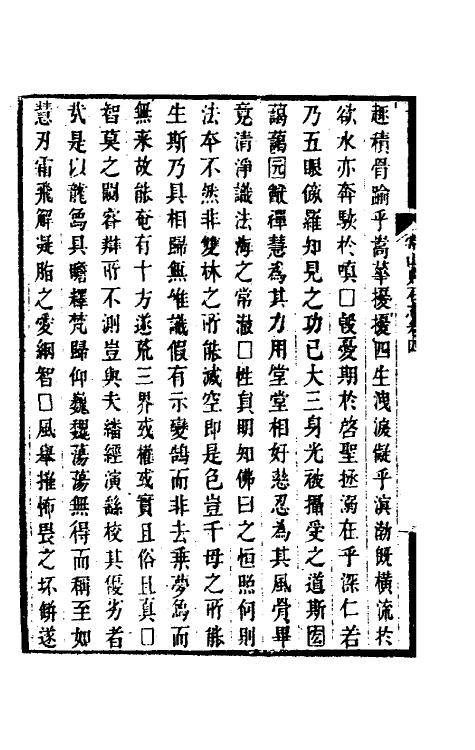 趣積骨踰乎嵩華擾擾四生洩淚儗乎溟渤旣橫流於
欲水亦奔駛於嗔□㲉憂期於啓聖拯溺在乎深仁若
乃五眼傍羅知見之功已大三身光被攝受之道斯宏
藹藹元猷禪慧為其力用堂堂相好慈忍為其風骨畢
竟清淨識法海之常澂□性貞明知佛日之恒照何則
法本不然非雙林之所能滅空即是色豈千母之所能
生斯乃具相歸無惟識假有示變鵠而非去乘夢象而
無来故能奄有十方遂荒三界或權或實且俗且真□
智莫之闚容辯所不測豈與夫繙經演繇校其優劣者
㢤是以龍象具瞻釋梵歸仰巍巍蕩蕩無得而稱至如
慧刃霜飛解凝脂之愛網智□風舉摧怖畏之坏缾遂
卷四